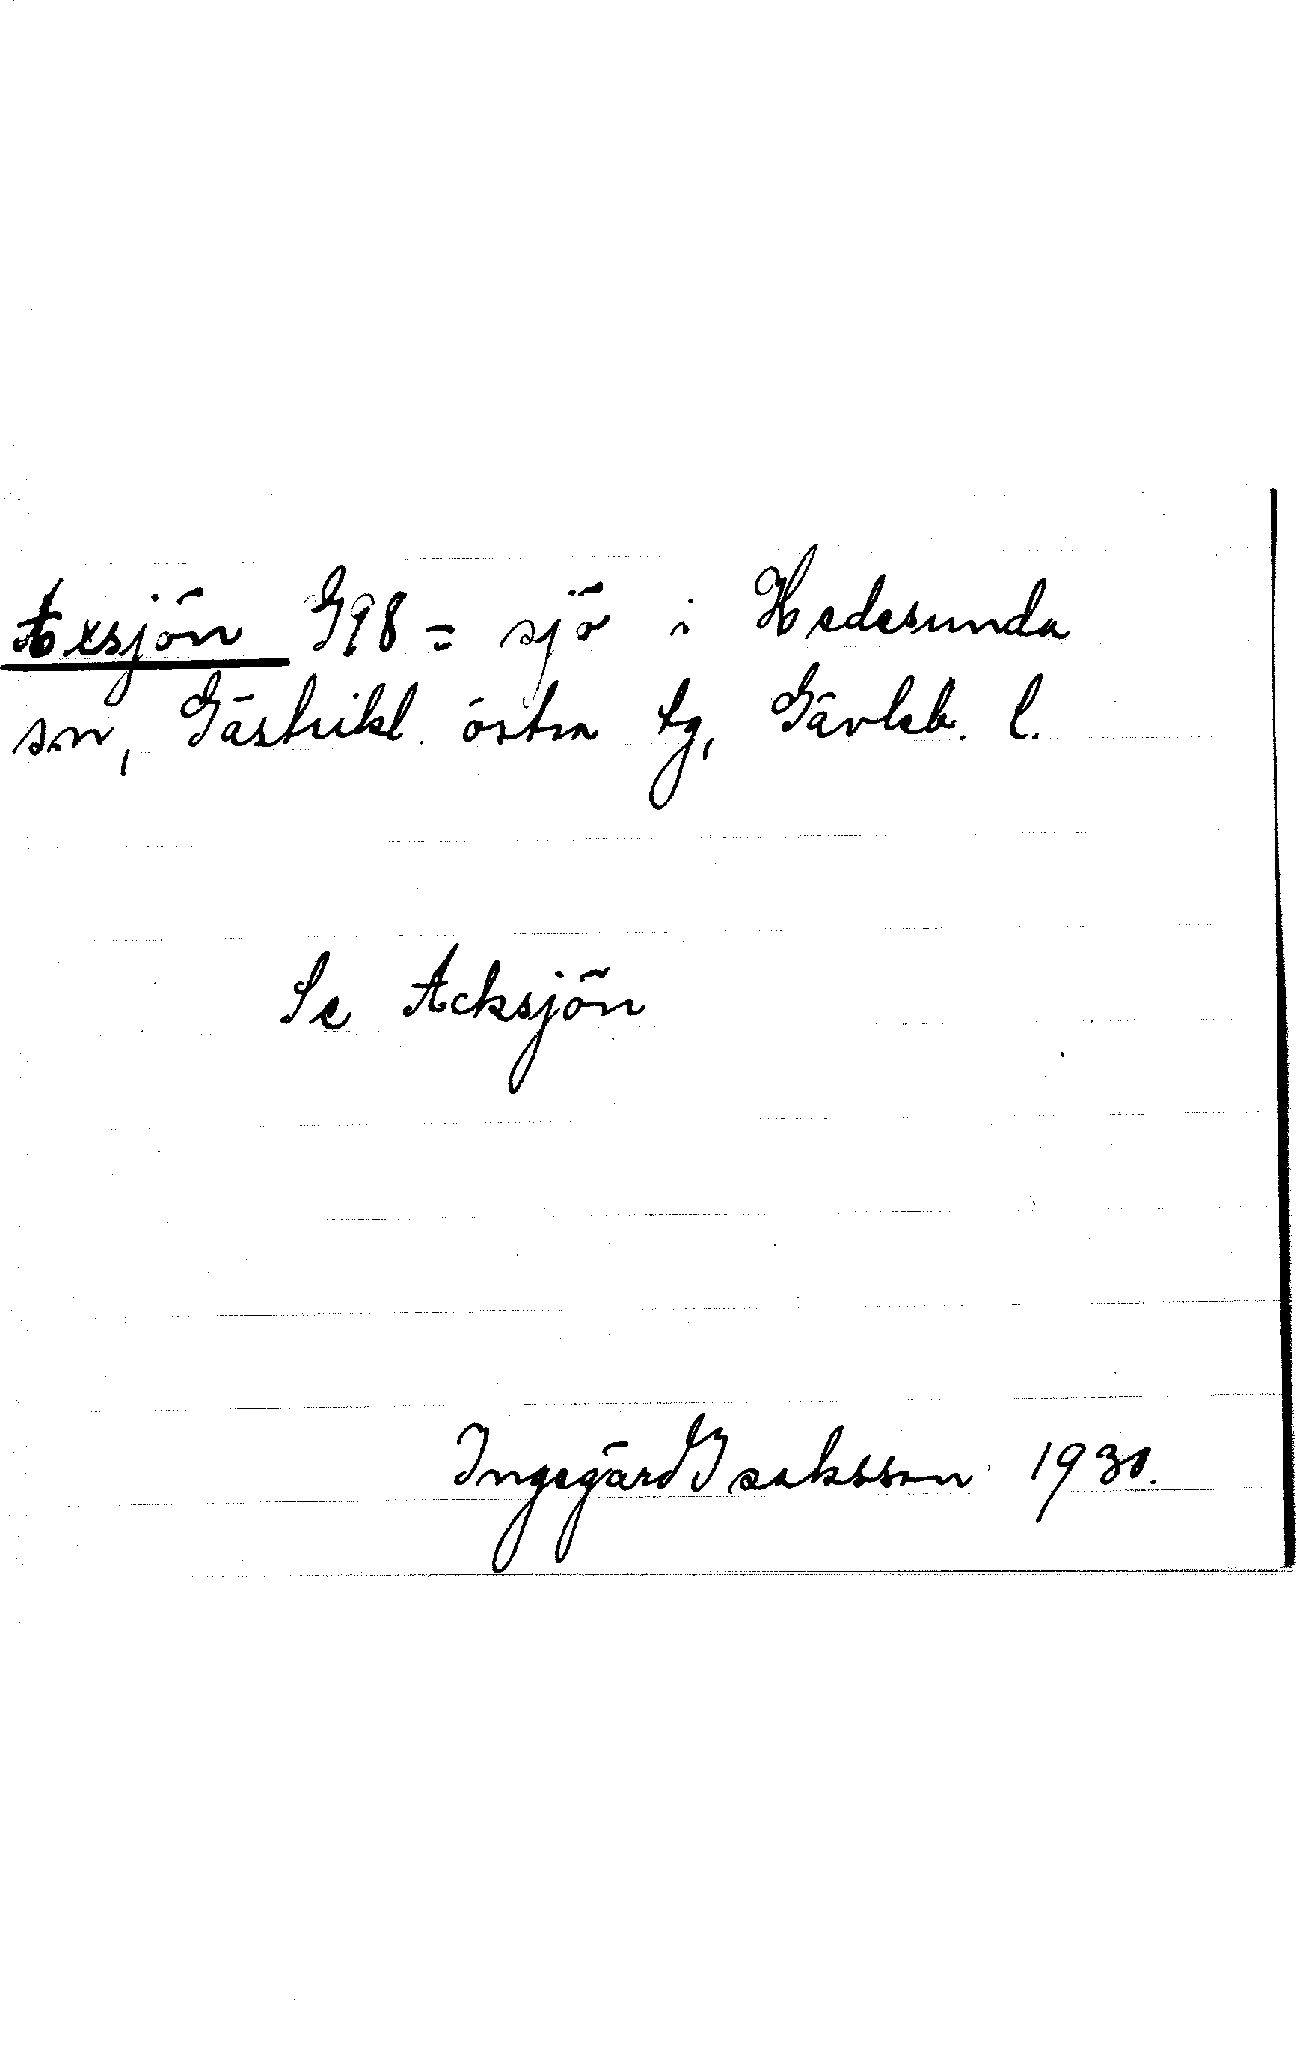 Axsjön G98 = sjö i Hedesunda
sn, Gästrikl. östra tg, Gävleb. l.
Se Acksjön
Ingegärd Isaksson 1930.